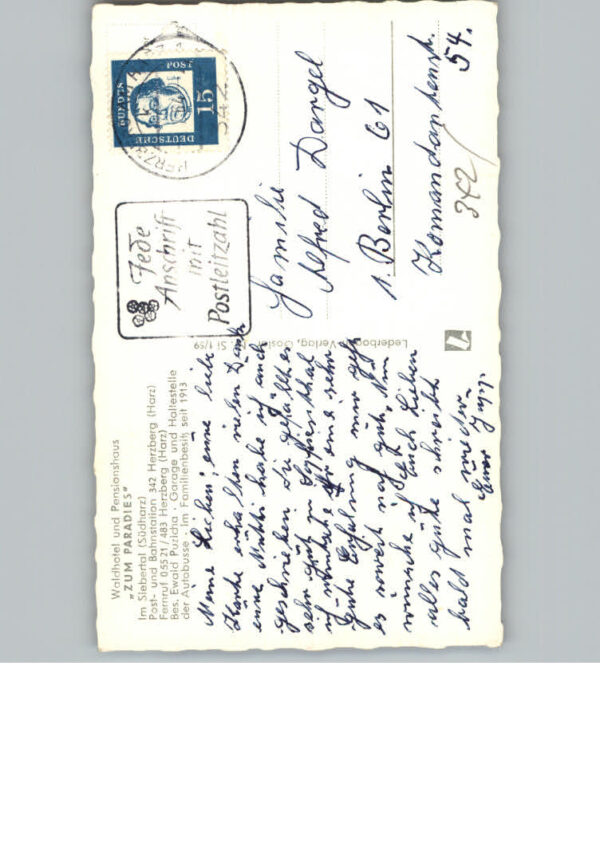 Waldhotel und Pensionshaus
„ZUM PARADIES"
Im Siebertal (Südharz)
Post- und Bahnstation 342 Herzberg (Harz)
Fernruf 05521/483 Herzberg (Harz)
Bes. Ewald Puzicha · Garage und Haltestelle
der Autobusse · Im Familienbesitz seit 1913
Meine Lieben, eure liebe
Karte erhalten vielen Dank
eure Mutti habe ich auch
geschrieben die gefällt es
sehr gut im
ich wünsche ihr eine sehr
gute Erholung mir geht
es soweit noch gut, Nun
wünsche ich euch Lieben
alles gute schreibt
bald mal wieder
Euer
Lederbogen Verlag, Goslar
St 1/59
Jede
Anschrift
mit
Postleitzahl
DEUTSCHE
BUNDESPOST
15
342
Familie
Alfred Dargel
1. Berlin 61
Komandantenstr.
54.
342